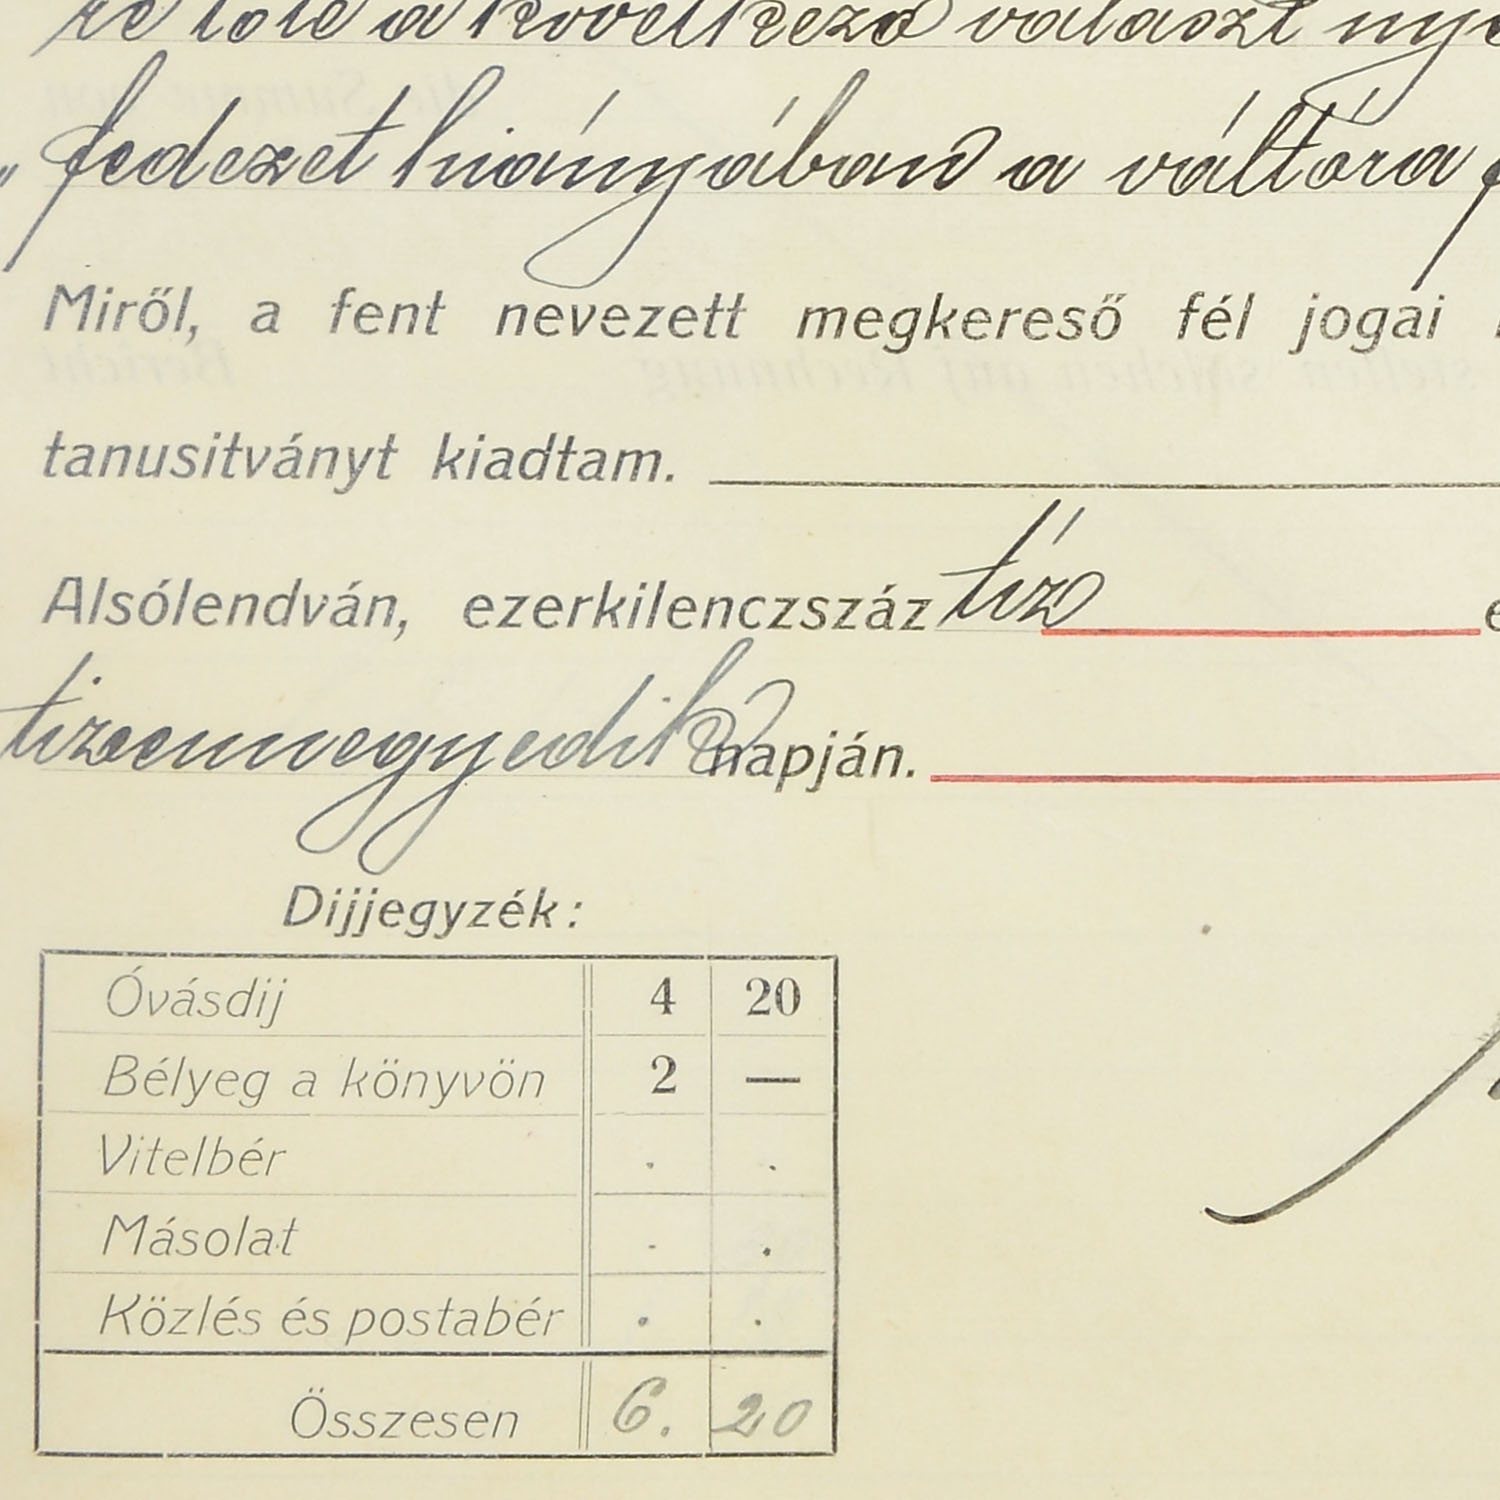 re tőle a következő választ
„fedezet hiányában a váltóra
Miről, a fent nevezett megkereső fél jogai
tanusitványt kiadtam.
Alsólendván, ezerkilenczszáz tiz
tizennegyedik napján.
Dijjegyzék:
Óvásdij 4 20
Bélyeg a könyvön 2 —
Vitelbér . .
Másolat . .
Közlés és postabér . .
Összesen 6. 20